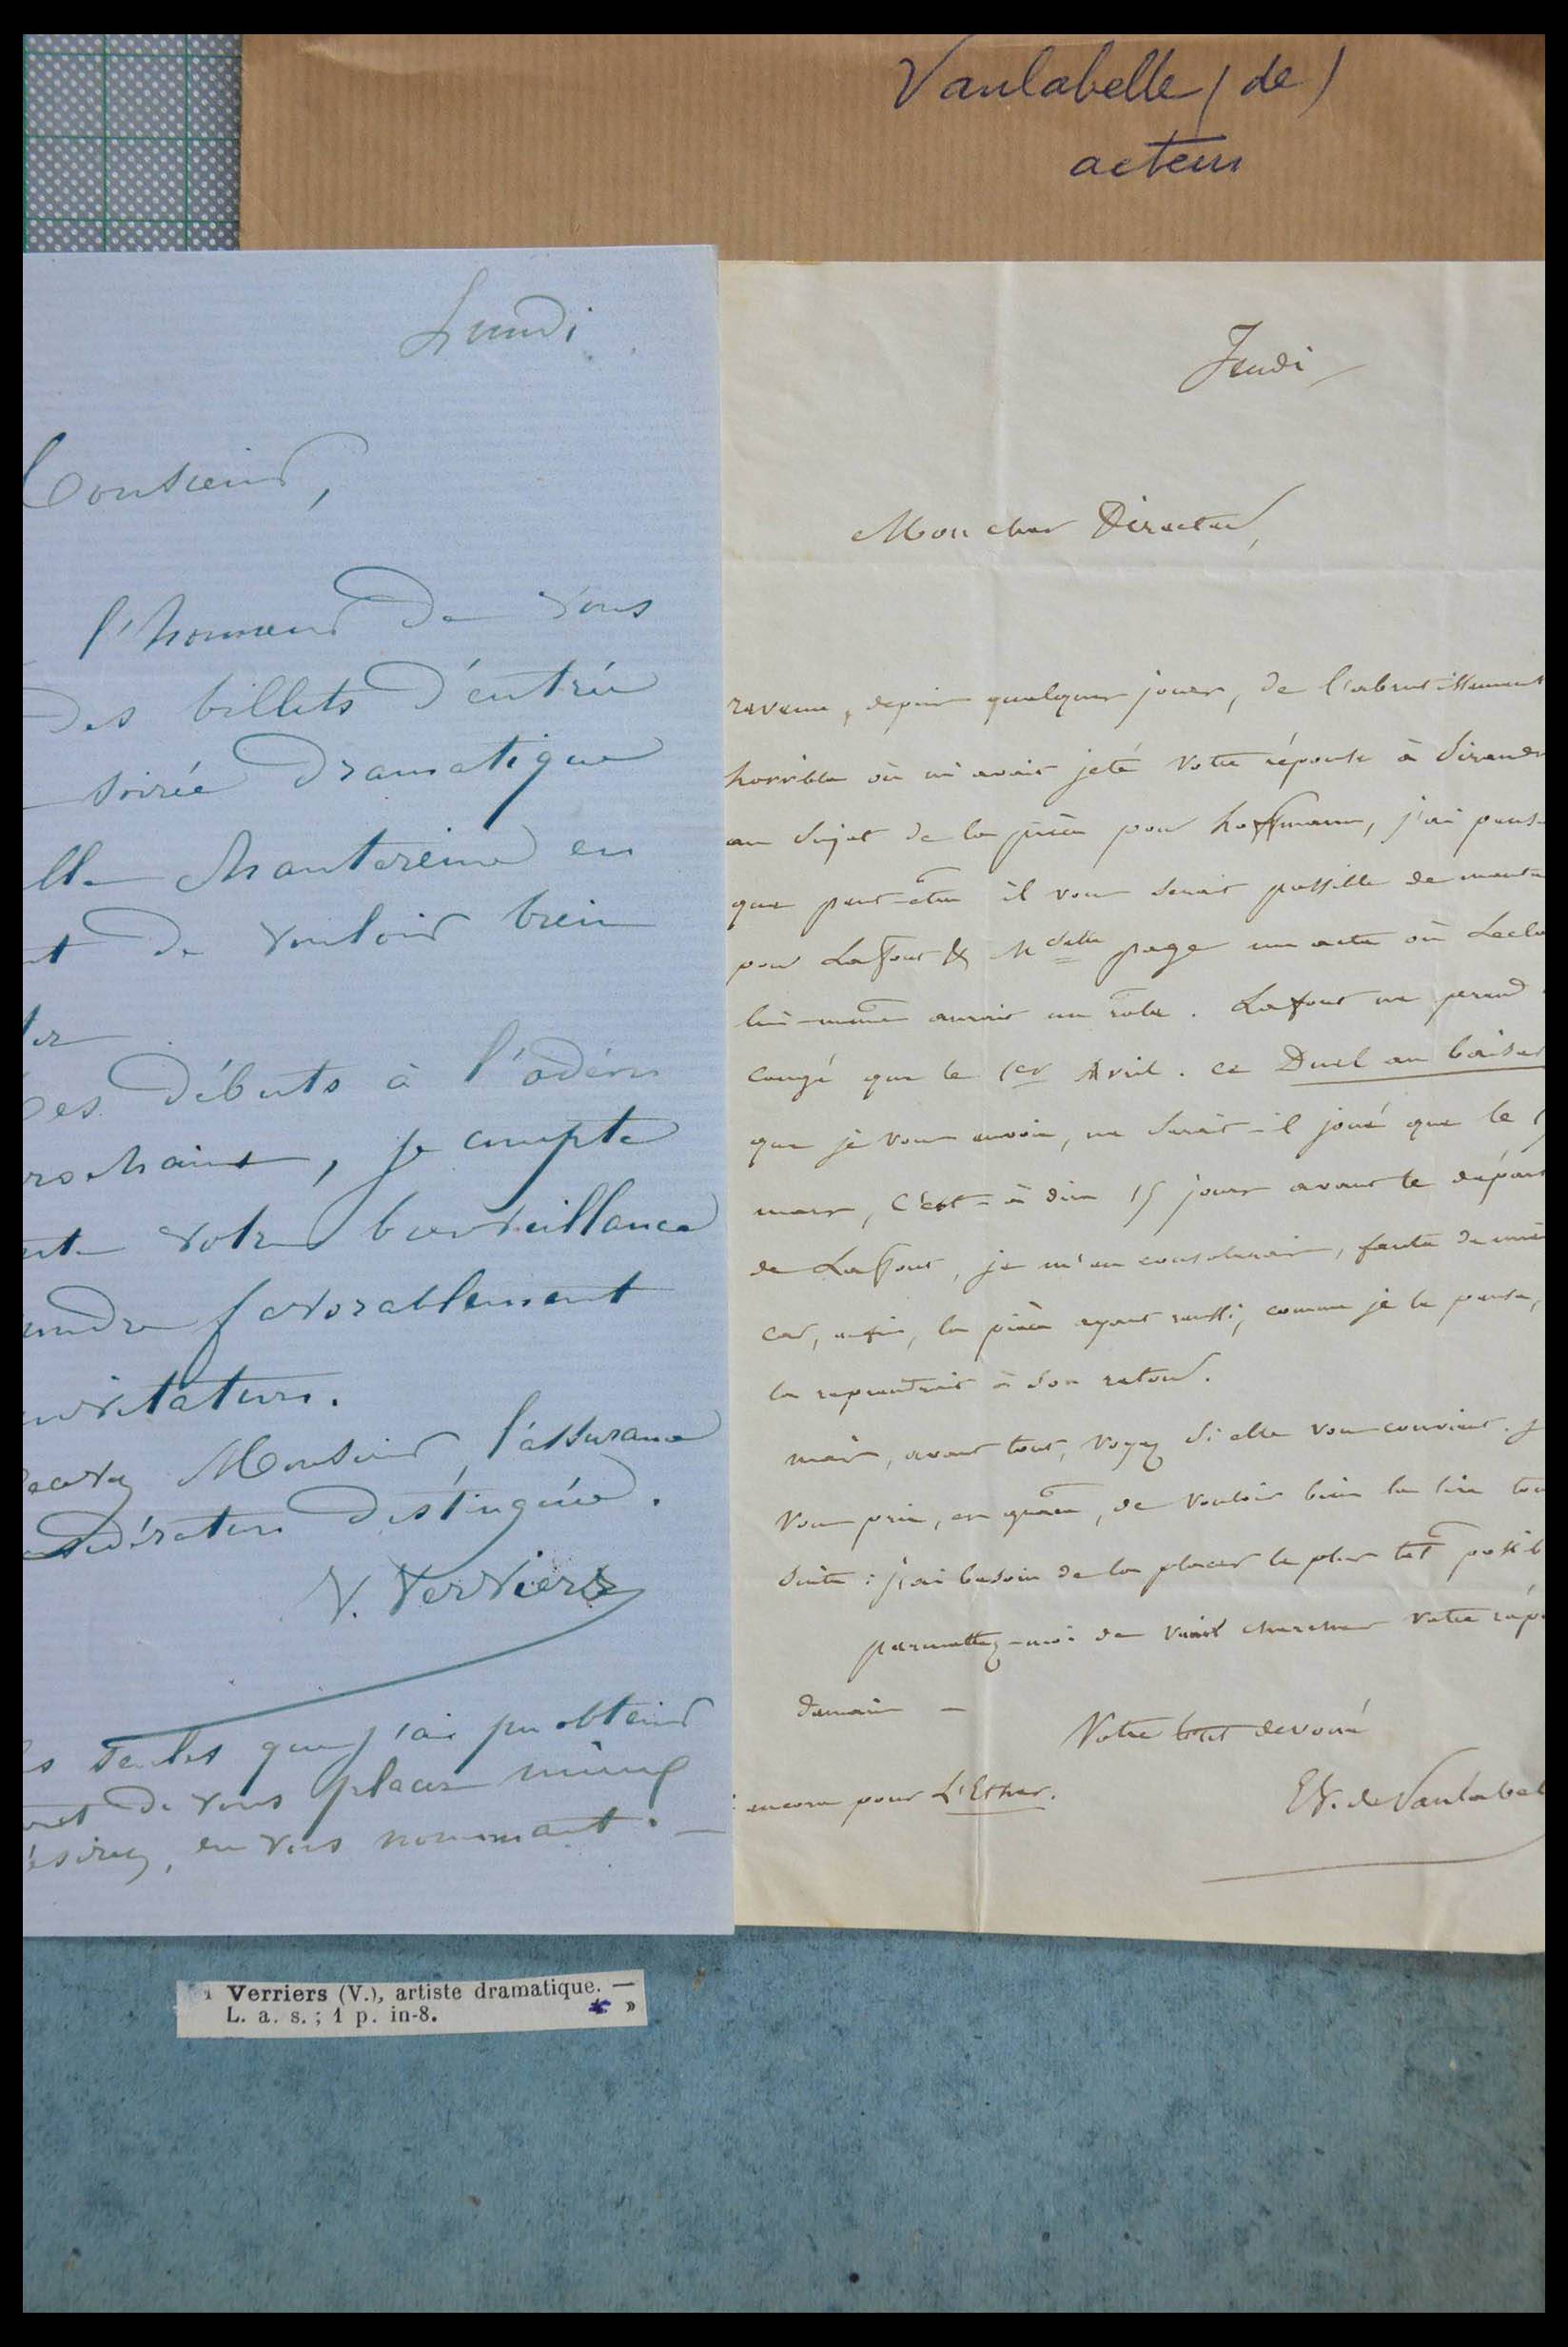 Vaulabelle (de)
acteur
Lundi
Monsieur,
l'honneur de vous
des billets d'entrée
soirée dramatique
lle Chantereine en
nt de vouloir bien
ter
Des débuts à l'odéon
rochains, je compte
votre bienveillance
endre favorablement
invitation.
Monsieur, l'assurance
considération distinguée.
V. Verriers
les seules que j'ai pu obtenir
de vous placer mieux
désirez, en vous nommant. —
Verriers (V.), artiste dramatique. —
L. a. s. ; 1 p. in-8. * »
Jeudi
Mon cher Directeur,
revenu, depuis quelques jours, de l'abrutissement
horrible où m'avait jeté votre réponse à Siraudin
au sujet de la pièce pour hoffmann, j'ai pensé
que peut-être il vous serait possible de monter
pour Lafont & Mdelle page un acte où Lecl
lui-même aurait un rôle. Lafont ne prend
congé que le 1er Avril. ce Duel au baiser
que je vous envoie, ne serait-il joué que le 1
mars, c'est-à-dire 15 jours avant le départ
de Lafont, je m'en consolerais, faute de mieux
car, enfin, la pièce ayant réussi, comme je le pense,
la reprendrait à son retour.
mais, avant tout, voyez si elle vous convient. j
vous prie, en grâce, de vouloir bien la lire tou
suite : j'ai besoin de la placer le plus tôt possib
permettez-moi de venir chercher votre rép
demain —
Votre tout dévoué
encore pour L'Esther.
Ed. de Vaulabel